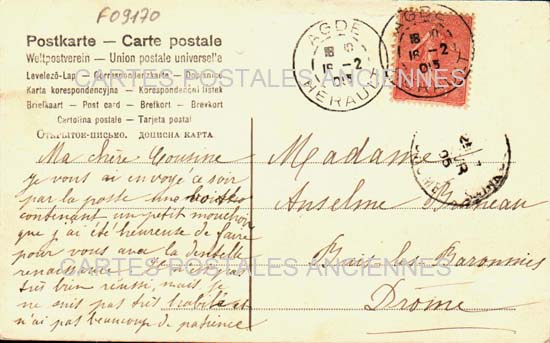 F09170
Postkarte — Carte postale
Weltpostverein — Union postale universel'e
Levelező-Lap — Korrespondenzkarte — Dopisnice
Karta korespondencyjna — Korespondencni listek
Briefkaart — Post card — Brefkort — Brevkort
Cartolina postale — Tarjeta postal
Открытое-письмо. дописна карта
CARTES POSTALES ANCIENNES
AGDE
18 S
16 -2
05
HERAULT
AGDE
18 S
16 -2
05
Ma chère Cousine
Je vous ai envoyé ce soir
par la poste une boîte
contenant un petit mouchoir
que j'ai été heureuse de faire
pour vous avec la dentelle
renaissance
très bien réussi, mais je
ne suis pas très habile et
n'ai pas beaucoup de patience
Madame
Anselme
Buis les Baronnies
Drome
CARTES POSTALES ANCIENNES